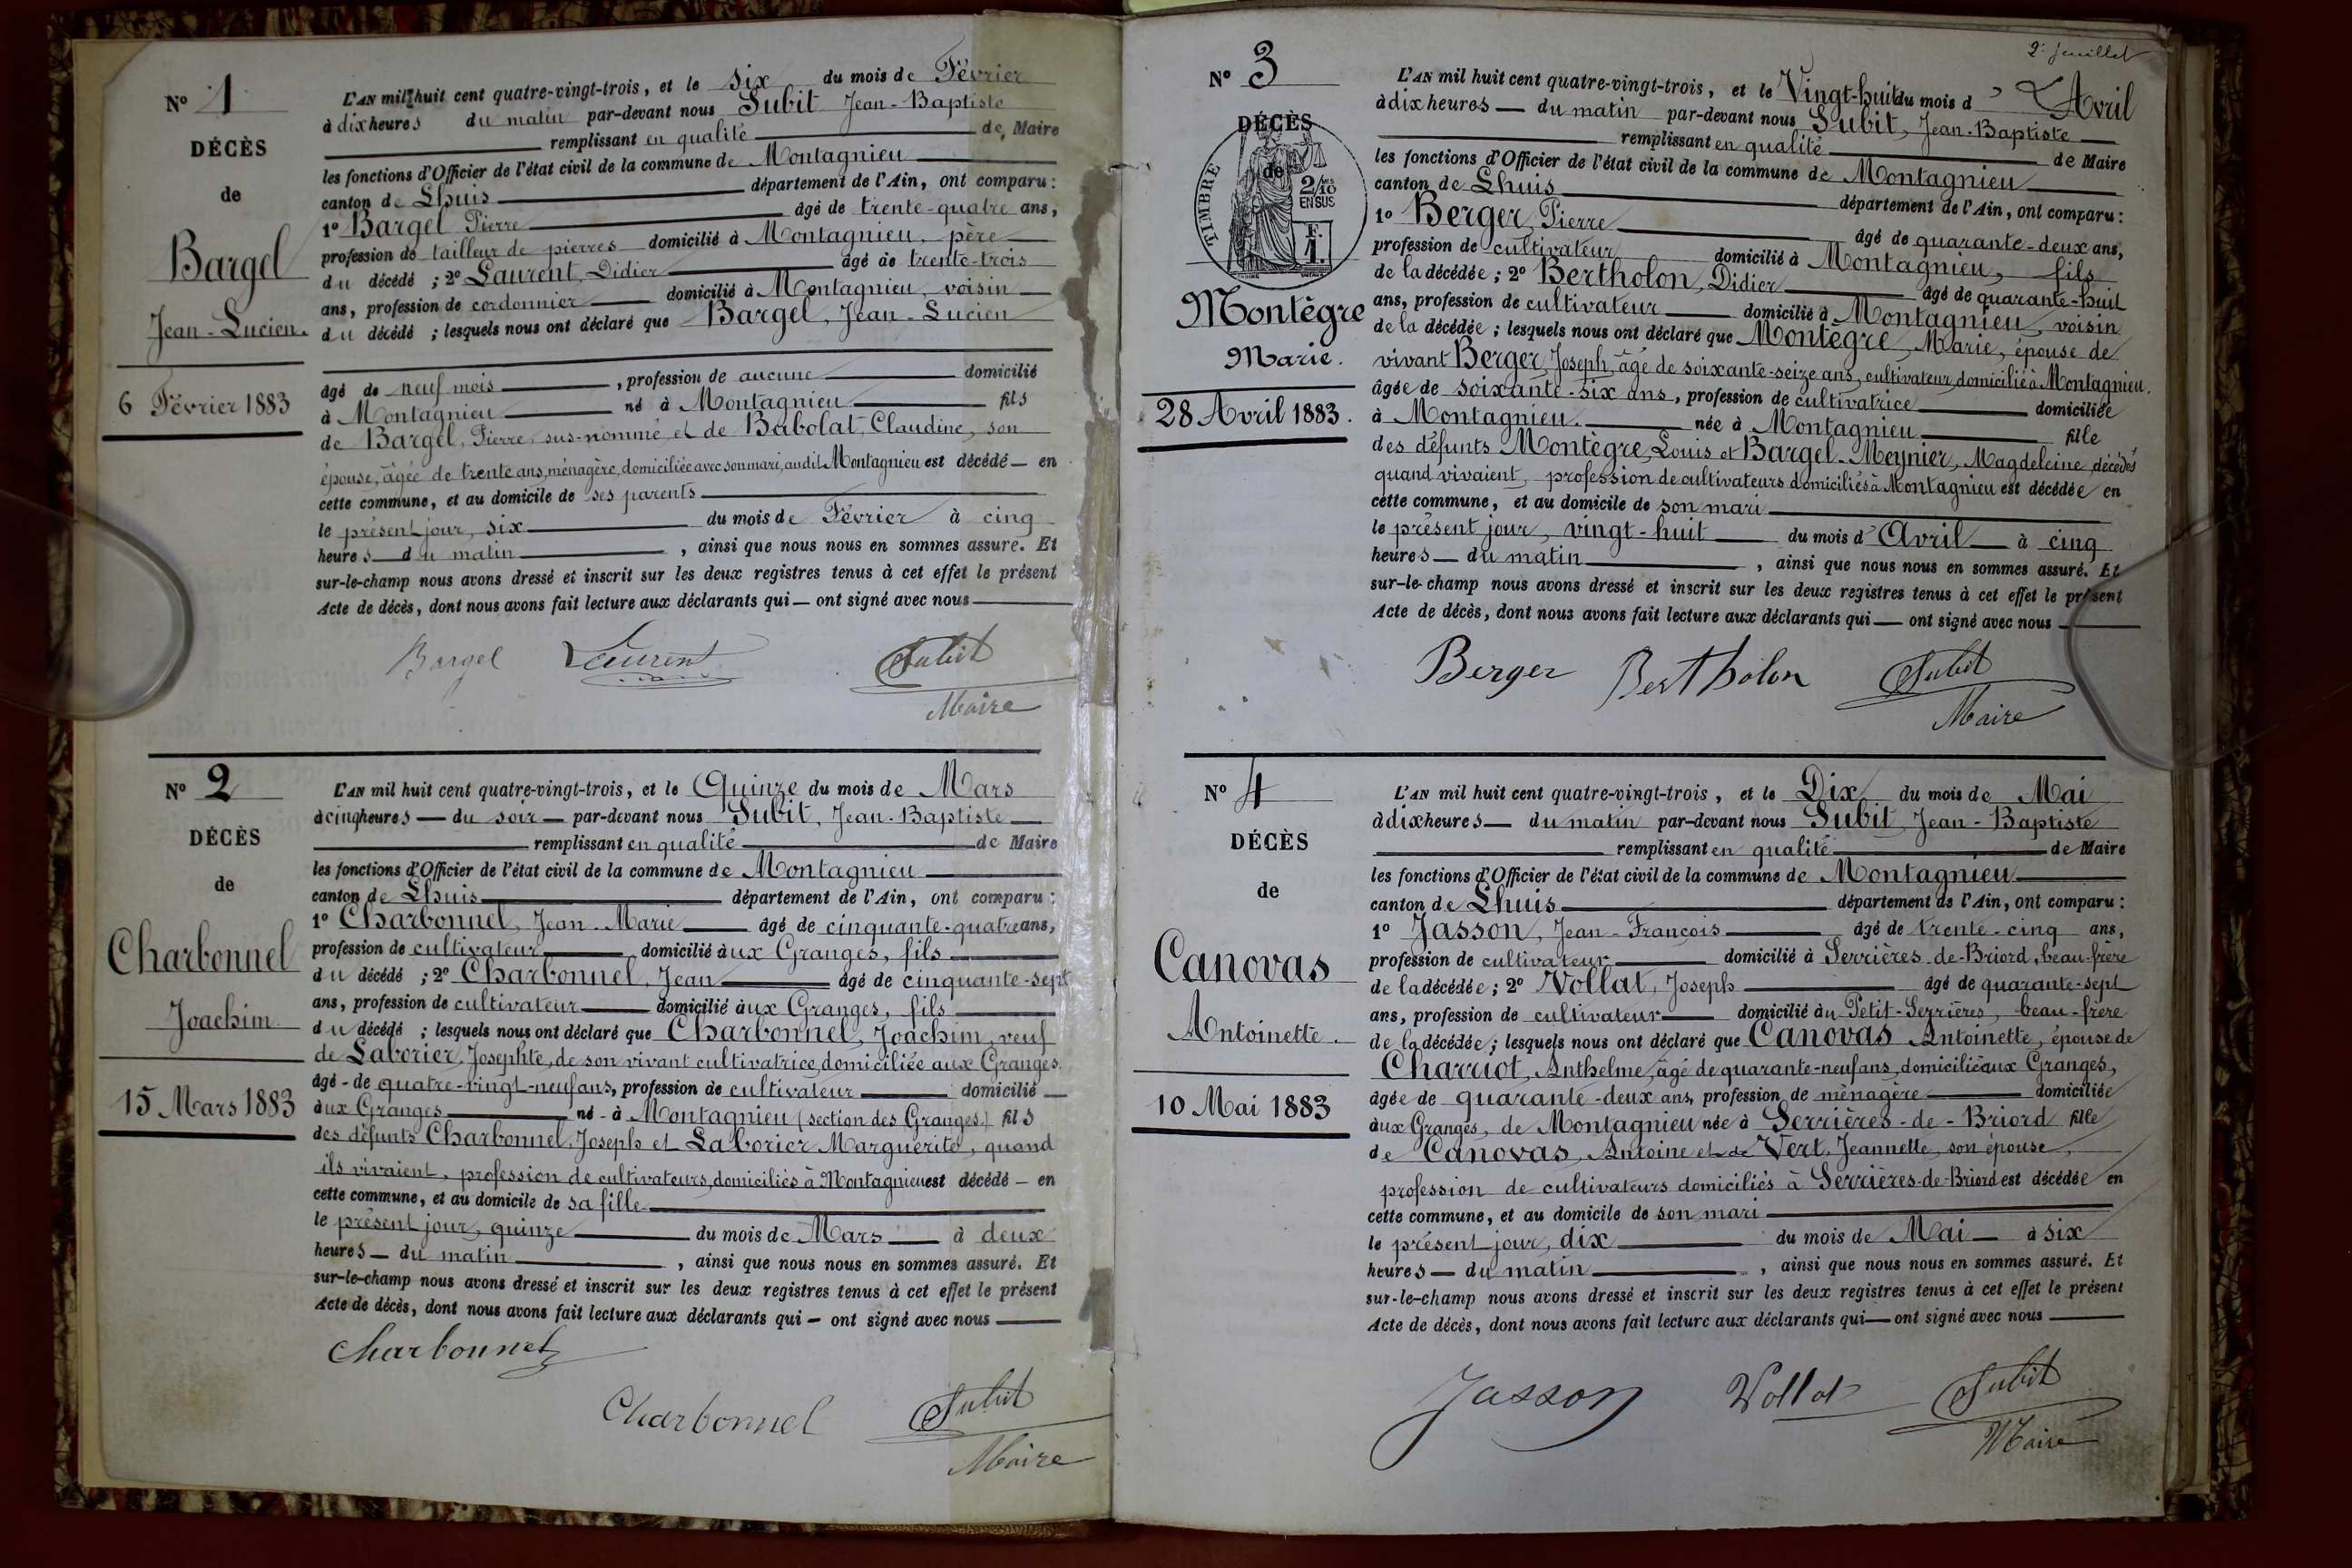 N° 1
DÉCÈS
de
Bargel
Jean-Lucien.
6 Février 1883
L'AN mil huit cent quatre-vingt-trois, et le six du mois de Février
à dix heures du matin par-devant nous Subit Jean-Baptiste
remplissant en qualité de Maire
les fonctions d'Officier de l'état civil de la commune de Montagnieu
canton de Lhuis département de l'Ain, ont comparu :
1° Bargel Pierre âgé de trente-quatre ans,
profession de tailleur de pierres domicilié à Montagnieu, père
du décédé ; 2° Laurent, Didier âgé de trente-trois
ans, profession de cordonnier domicilié à Montagnieu, voisin
du décédé ; lesquels nous ont déclaré que Bargel, Jean-Lucien
âgé de neuf mois, profession de aucune domicilié
à Montagnieu né à Montagnieu fils
de Bargel, Pierre sus-nommé et de Babolat, Claudine, son
épouse, âgée de trente ans, ménagère, domiciliée avec son mari, audit Montagnieu est décédé en
cette commune, et au domicile de ses parents
le présent jour, six du mois de Février à cinq
heures du matin, ainsi que nous nous en sommes assuré. Et
sur-le-champ nous avons dressé et inscrit sur les deux registres tenus à cet effet le présent
Acte de décès, dont nous avons fait lecture aux déclarants qui — ont signé avec nous
Bargel Laurent Subit
Maire
N° 2
DÉCÈS
de
Charbonnel
Joachim
15 Mars 1883
L'AN mil huit cent quatre-vingt-trois, et le Quinze du mois de Mars
à cinq heures — du soir — par-devant nous Subit, Jean-Baptiste
remplissant en qualité de Maire
les fonctions d'Officier de l'état civil de la commune de Montagnieu
canton de Lhuis département de l'Ain, ont comparu :
1° Charbonnel, Jean-Marie âgé de cinquante-quatre ans,
profession de cultivateur domicilié aux Granges, fils
du décédé ; 2° Charbonnel, Jean âgé de cinquante-sept
ans, profession de cultivateur domicilié aux Granges, fils
du décédé ; lesquels nous ont déclaré que Charbonnel, Joachim, veuf
de Laborier, Josephte, de son vivant cultivatrice, domiciliée aux Granges.
âgé de quatre-vingt-neuf ans, profession de cultivateur domicilié
aux Granges né à Montagnieu (section des Granges) fils
des défunts Charbonnel, Joseph et Laborier Marguerite, quand
ils vivaient, profession de cultivateurs, domiciliés à Montagnieu est décédé — en
cette commune, et au domicile de sa fille
le présent jour, quinze du mois de Mars à deux
heures — du matin, ainsi que nous nous en sommes assuré. Et
sur-le-champ nous avons dressé et inscrit sur les deux registres tenus à cet effet le présent
Acte de décès, dont nous avons fait lecture aux déclarants qui — ont signé avec nous
Charbonnel
Charbonnel Subit
Maire
2e feuillet
N° 3
DÉCÈS
de
TIMBRE
2/10
EN SUS
F.
1.
Montègre
Marie.
28 Avril 1883.
L'AN mil huit cent quatre-vingt-trois, et le Vingt-huit du mois d'Avril
à dix heures — du matin par-devant nous Subit, Jean-Baptiste
remplissant en qualité de Maire
les fonctions d'Officier de l'état civil de la commune de Montagnieu
canton de Lhuis département de l'Ain, ont comparu :
1° Berger, Pierre âgé de quarante-deux ans,
profession de cultivateur domicilié à Montagnieu, fils
de la décédée ; 2° Bertholon, Didier âgé de quarante-huit
ans, profession de cultivateur domicilié à Montagnieu, voisin
de la décédée ; lesquels nous ont déclaré que Montègre, Marie, épouse de
vivant Berger, Joseph, âgé de soixante-seize ans, cultivateur, domicilié à Montagnieu.
âgée de soixante-six ans, profession de cultivatrice domiciliée
à Montagnieu. née à Montagnieu fille
des défunts Montègre, Louis et Bargel-Meynier, Magdeleine décédés
quand vivaient, profession de cultivateurs domiciliés à Montagnieu est décédée en
cette commune, et au domicile de son mari
le présent jour, vingt-huit du mois d'Avril à cinq
heures — du matin, ainsi que nous nous en sommes assuré. Et
sur-le-champ nous avons dressé et inscrit sur les deux registres tenus à cet effet le présent
Acte de décès, dont nous avons fait lecture aux déclarants qui — ont signé avec nous
Berger Bertholon Subit
Maire
N° 4
DÉCÈS
de
Canovas
Antoinette.
10 Mai 1883
L'AN mil huit cent quatre-vingt-trois, et le Dix du mois de Mai
à dix heures — du matin par-devant nous Subit, Jean-Baptiste
remplissant en qualité de Maire
les fonctions d'Officier de l'état civil de la commune de Montagnieu
canton de Lhuis département de l'Ain, ont comparu :
1° Jasson, Jean-François âgé de trente-cinq ans,
profession de cultivateur domicilié à Serrières-de-Briord, beau-frère
de la décédée ; 2° Vollat, Joseph âgé de quarante-sept
ans, profession de cultivateur domicilié au Petit-Serrières, beau-frère
de la décédée ; lesquels nous ont déclaré que Canovas Antoinette, épouse de
Charriot, Anthelme, âgé de quarante-neuf ans, domicilié aux Granges,
âgée de quarante-deux ans, profession de ménagère domiciliée
aux Granges, de Montagnieu née à Serrières-de-Briord fille
de Canovas, Antoine et de Vert, Jeannette, son épouse,
profession de cultivateurs domiciliés à Serrières-de-Briord est décédée en
cette commune, et au domicile de son mari
le présent jour, dix du mois de Mai — à six
heures — du matin, ainsi que nous nous en sommes assuré. Et
sur-le-champ nous avons dressé et inscrit sur les deux registres tenus à cet effet le présent
Acte de décès, dont nous avons fait lecture aux déclarants qui — ont signé avec nous
Jasson Vollat Subit
Maire